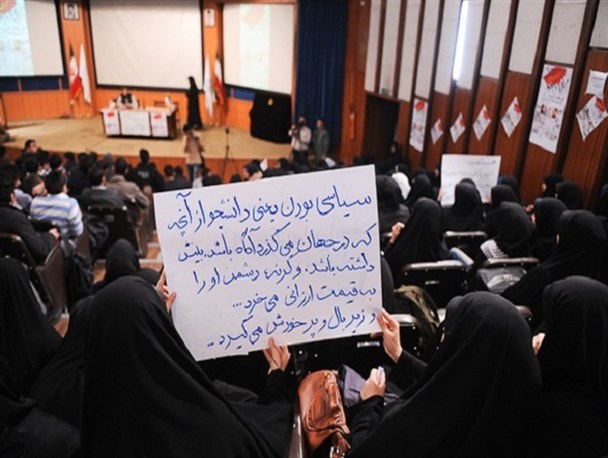 سیاسی بودن یعنی دانشجو از آنچه
که در جهان می‌گذرد آگاه باشد. بینش
داشته باشد. وگرنه دشمن او را
به قیمت ارزانی می‌خرد...
و زیر بال و پر خودش می‌گیرد...